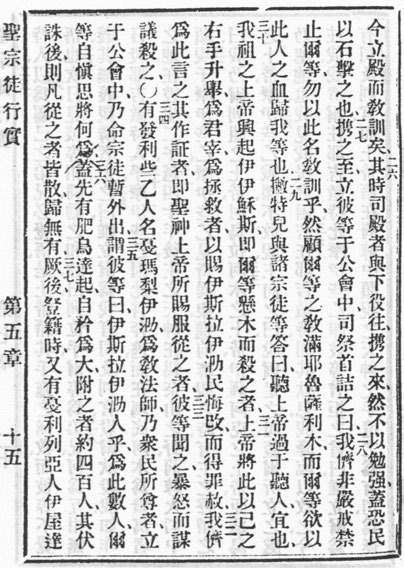 今立殿而敎訓矣、二六其時司殿者與下役往、携之來、然不以勉强、蓋恐民
以石擊之也、二七携之至、立彼等于公會中、司祭首詰之曰、二八我儕非嚴戒禁
止爾等勿以此名敎訓乎、然顧爾等之敎滿耶魯薩利木而爾等欲以
此人之血歸我等也、二九撇特兒與諸宗徒等答曰、聽上帝過于聽人、宜也、
三十我祖之上帝興起伊伊穌斯、即爾等懸木而殺之者、三一上帝將此以己之
右手升舉、爲君宰、爲拯救者、以賜伊斯拉伊泐民悔改而得罪赦、三二我儕
爲此言之其作証者、即聖神上帝所賜服從之者、三三彼等聞之、暴怒而謀
議殺之、〇三四有發利些乙人名戞瑪梨伊泐、爲敎法師、乃衆民所尊者、立
于公會中、乃命宗徒暫外出、三五謂彼等曰、伊斯拉伊泐人乎、爲此數人、爾
等自愼思將何爲、三六蓋先有肥烏達起、自矜爲大、附之者約四百人、其伏
誅後、則凡從之者皆散、歸無有、三七厥後登籍時、又有戞利列亞人伊屋達
聖宗徒行實 第五章 十五